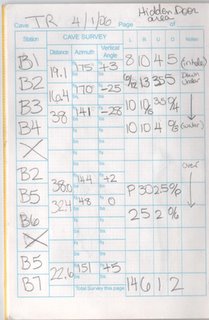 Hidden Door
area
Cave TR 4/1/06 Page of
CAVE SURVEY
Station Distance Azimuth Vertical Angle L R U D Notes
B1 8 10 4 5 (in hole)
19.1 175 -3
B2 Down under
16.4 170 -25
B3 10
38 141 -28
B4 10 10 4 (water)
X
B2 over
38.0 144 +2
B5 P 30 25
32.4 148 0
B6 25 2
X
B5
22.6 151 +5
B7 14 6 1 2
Total Survey this page